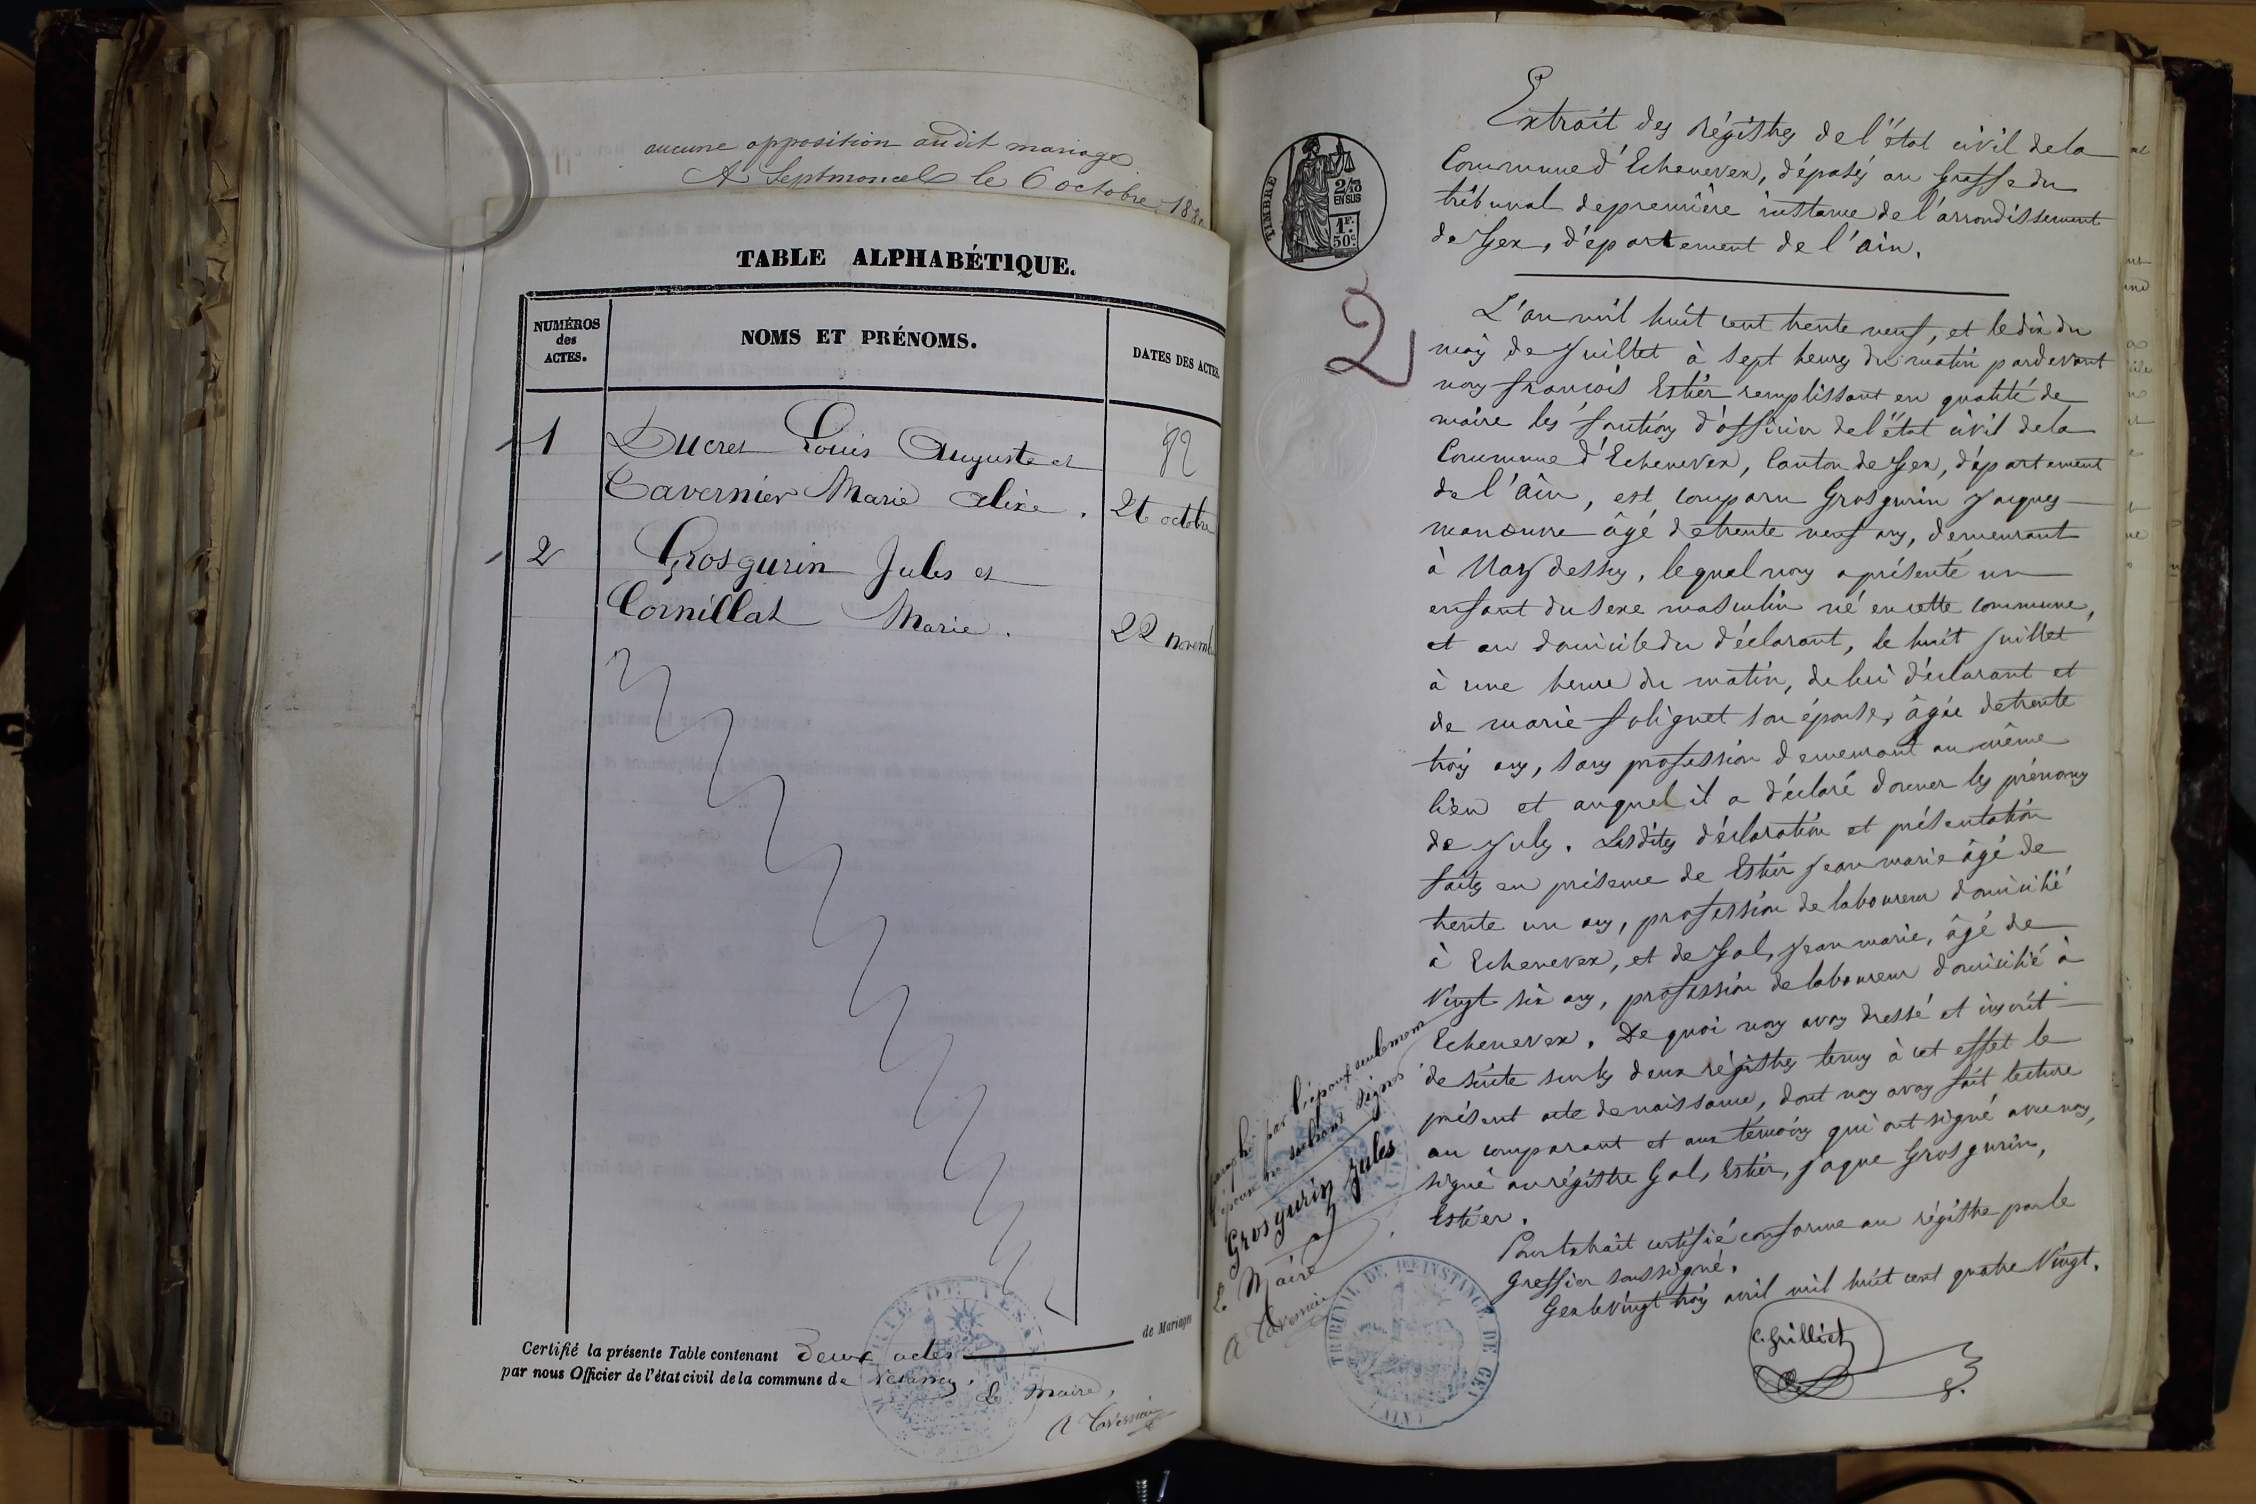 aucune opposition audit mariage
A Septmoncel le 6 octobre 188
TABLE ALPHABÉTIQUE.
NUMÉROS
des
ACTES.
NOMS ET PRÉNOMS.
DATES DES ACTES.
1 Ducret Louis Auguste et
Tavernier Marie Alixe . 26 octobre
2 Grosgurin Jules et
Cornillat Marie . 22 novemb
Certifié la présente Table contenant deux actes de Mariages
par nous Officier de l'état civil de la commune de Vesancy.
Le Maire,
TIMBRE
2/10
EN SUS
1F.
50c.
2
Extrait des régistres de l'état civil de la
Commune d'Echenevex, déposés au Greffe du
tribunal de première instance de l'arrondissement
de Gex, département de l'ain.
L'an mil huit cent trente neuf, et le dix du
mois de Juillet à sept heures du matin pardevant
nous françois Estier remplissant en qualité de
maire les fontions d'officier de l'état civil de la
Commune d'Echenevex, Canton de Gex, département
de l'Ain, est comparu Grosgurin Jacques
manoeuvre âgé de trente neuf ans, demeurant
à Naz dessus, lequel nous a présenté un
enfant du sexe masculin né en cette commune,
et au domicile du déclarant, le huit Juillet
à une heure du matin, de lui déclarant et
de marie folignet son épouse, âgée de trente
trois ans, sans profession demeurant au même
lieu et auquel il a déclaré donner les prénoms
de Jules. Lesdites déclaration et présentation
faites en présence de Estier Jean marie âgé de
trente un ans, profession de laboureur domicilié
à Echenevex, et de Gal, Jean marie, âgé de
Vingt six ans, profession de laboureur domicilié à
Echenevex. De quoi nous avons dressé et inscrit
de suite sur les deux régistres tenus à cet effet le
présent acte de naissance, dont nous avons fait lecture
au comparant et aux témoins qui ont signé avec nous,
signé au régistre Gal, Estier, jaque Grosgurin,
Estier.
Pour extrait certifié conforme au régistre par le
Greffier soussigné.
Gex le vingt trois avril mil huit cent quatre Vingt.
C. Grilliet
paraphé par l'époux seulement
l'épouse ne sachant signer
Grosgurin Jules
Le Maire
A Tavernier
TRIBUNAL DE 1ère INSTANCE DE GEX
(AIN)